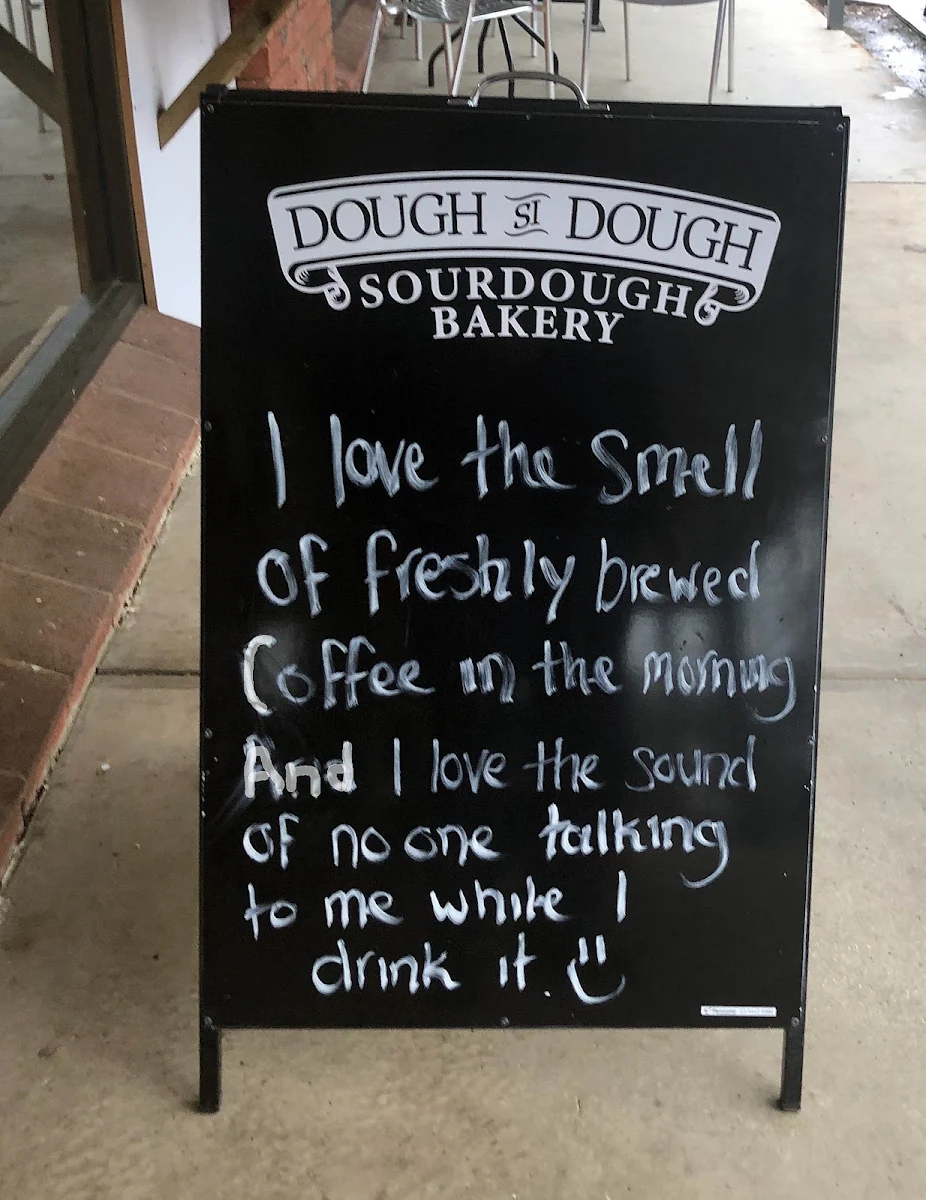 DOUGH SI DOUGH
SOURDOUGH
BAKERY
I love the Smell
of freshly brewed
Coffee in the morning
And I love the sound
of no one talking
to me while I
drink it.